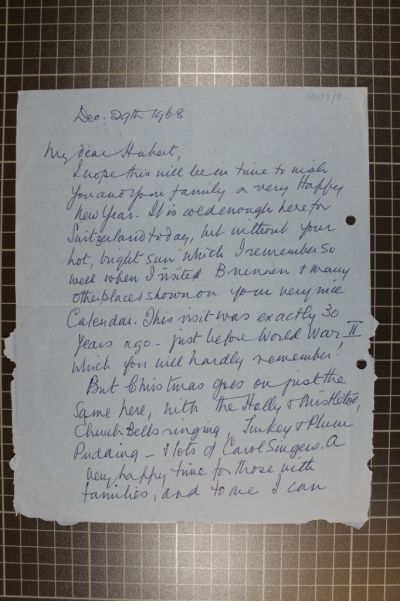 Dec. 29th 1968
My dear Hubert,
I hope this will be in time to wish
you and your family a very Happy
New Year. It is cold enough here for
Switzerland today, but without your
hot, bright sun which I remember so
well when I visited Brunnen & many
other places shown on your very nice
Calendar. This visit was exactly 30
years ago - just before World War II
which you will hardly remember!
But Christmas goes on just the
same here, with the Holly & Mistletoe,
Church Bells ringing, Turkey & Plum
Pudding - & lots of Carol Singers. A
very happy time for those with
families, and to me I can